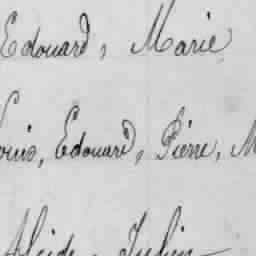 Edouard, Marie
Louis, Edouard, Pierre, M
Alcide, Julien